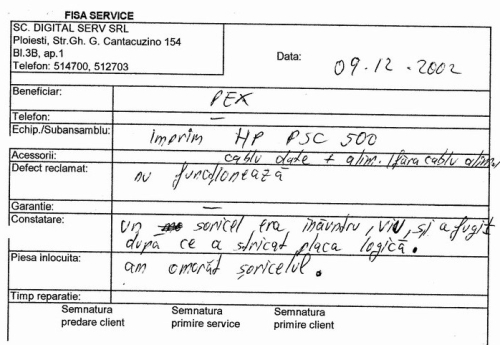 FISA SERVICE
SC. DIGITAL SERV SRL
Ploiesti, Str.Gh. G. Cantacuzino 154
Bl.3B, ap.1
Telefon: 514700, 512703
Data: 09.12.2002
Beneficiar: PEX
Telefon: —
Echip./Subansamblu: imprim HP PSC 500
Accesorii: cablu date + alim. (fara cablu alim)
Defect reclamat: nu funcționează
Garantie: —
Constatare: un soricel era înăuntru, viu, și a fugit
după ce a stricat placa logică.
Piesa inlocuita: am omorât șoricelul.
Timp reparatie:
Semnatura Semnatura Semnatura
predare client primire service primire client